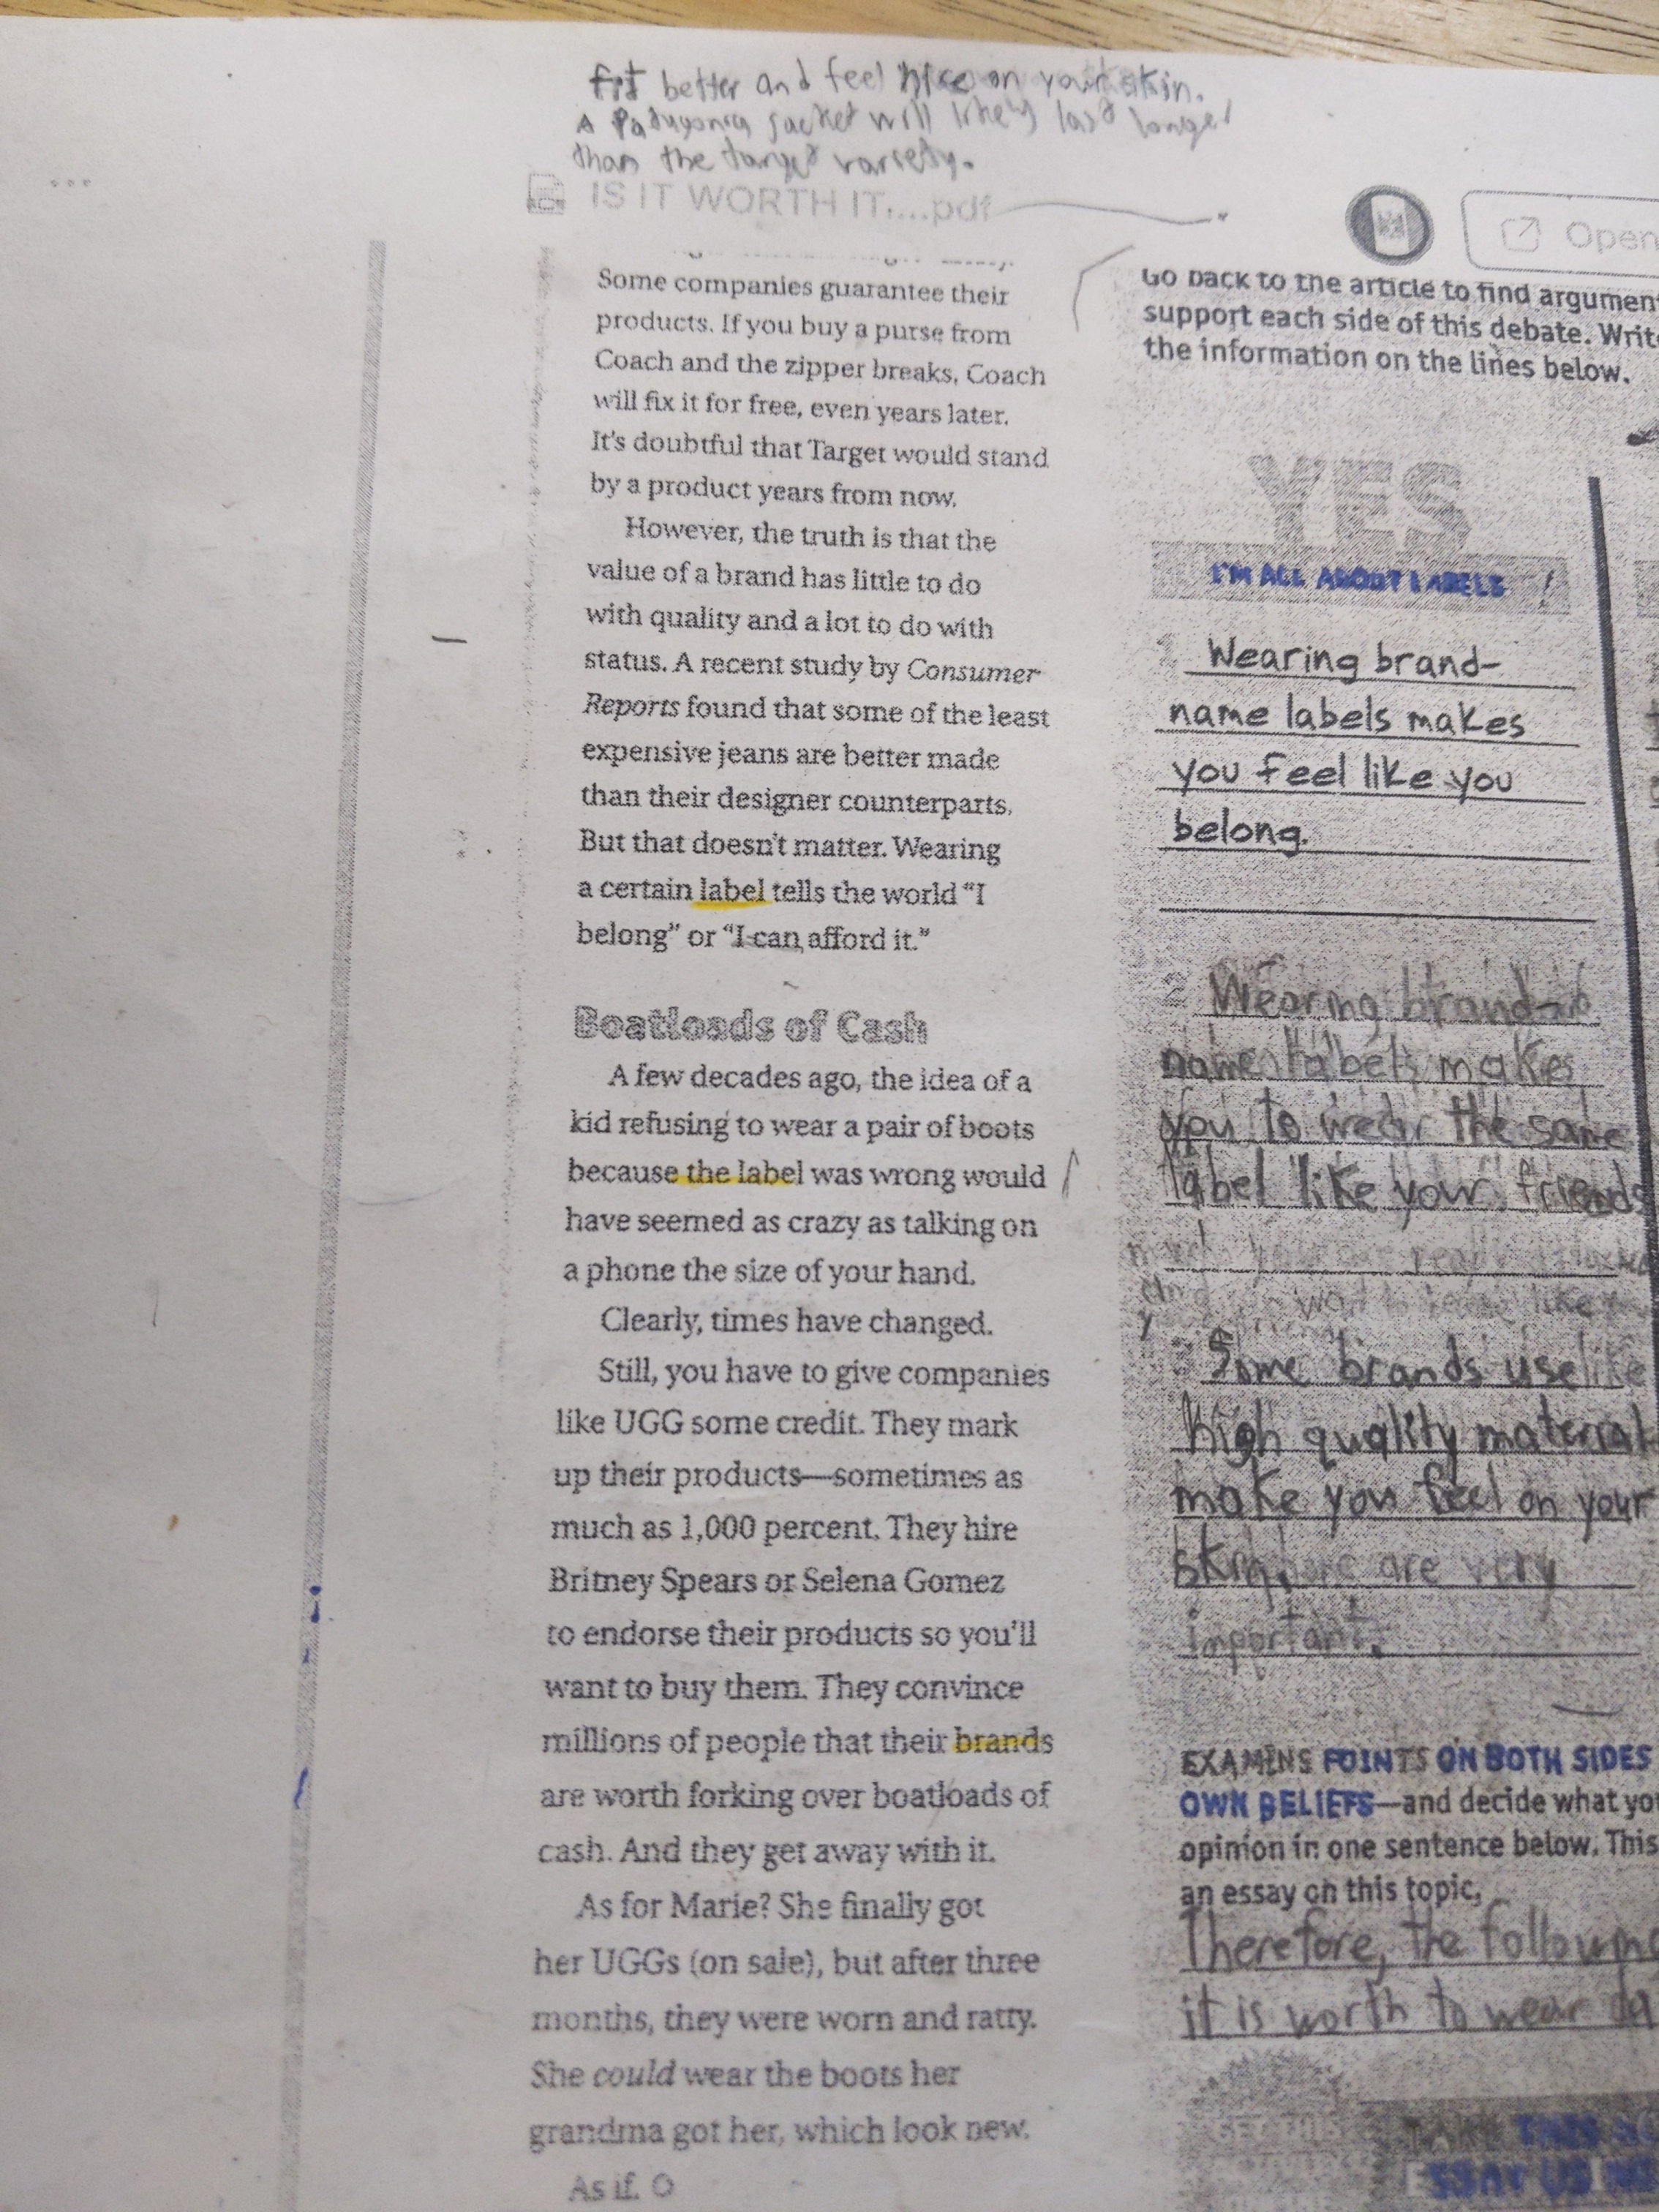 fit better and feel nice on your skin.
A Patagonia jacket will likely last longer
than the target variety.
IS IT WORTH IT....pdf
Open
Some companies guarantee their
products. If you buy a purse from
Coach and the zipper breaks, Coach
will fix it for free, even years later.
It's doubtful that Target would stand
by a product years from now.
However, the truth is that the
value of a brand has little to do
with quality and a lot to do with
status. A recent study by Consumer
Reports found that some of the least
expensive jeans are better made
than their designer counterparts.
But that doesn't matter. Wearing
a certain label tells the world “I
belong” or “I can afford it.”
Boatloads of Cash
A few decades ago, the idea of a
kid refusing to wear a pair of boots
because the label was wrong would
have seemed as crazy as talking on
a phone the size of your hand.
Clearly, times have changed.
Still, you have to give companies
like UGG some credit. They mark
up their products—sometimes as
much as 1,000 percent. They hire
Britney Spears or Selena Gomez
to endorse their products so you'll
want to buy them. They convince
millions of people that their brands
are worth forking over boatloads of
cash. And they get away with it.
As for Marie? She finally got
her UGGs (on sale), but after three
months, they were worn and ratty.
She could wear the boots her
grandma got her, which look new.
As if.
Go back to the article to find argumen
support each side of this debate. Writ
the information on the lines below.
YES
I'M ALL ABOUT LABELS !
1. Wearing brand-
name labels makes
you feel like you
belong.
2. Wearing brand-
name labels makes
you to wear the same
label like your friends
Some brands use like
high quality material
make you feel on your
skin, are very
important.
EXAMINE POINTS ON BOTH SIDES
OWN BELIEFS—and decide what yo
opinion in one sentence below. This
an essay on this topic.
Therefore, the following
it is worth to wear